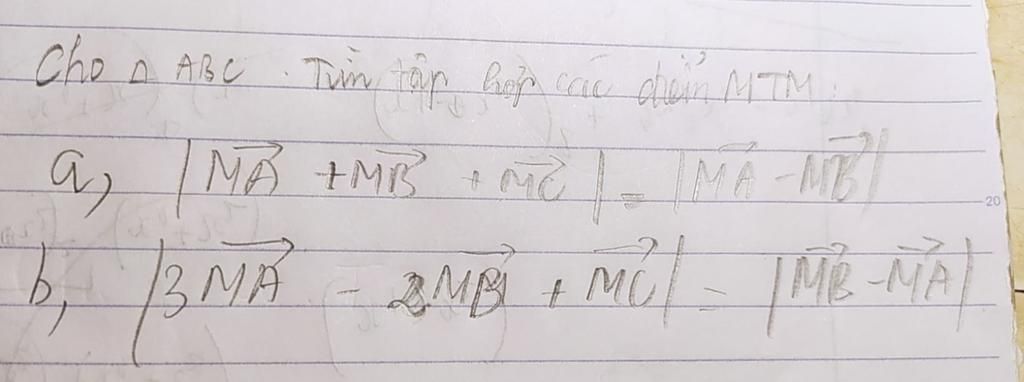 Cho Δ ABC. Tìm tập hợp các điểm M TM:
a, |$\overrightarrow{MA}$ + $\overrightarrow{MB}$ + $\overrightarrow{MC}$| = |$\overrightarrow{MA}$ - $\overrightarrow{MB}$|
b, |3$\overrightarrow{MA}$ - 2$\overrightarrow{MB}$ + $\overrightarrow{MC}$| = |$\overrightarrow{MB}$ - $\overrightarrow{MA}$|
20